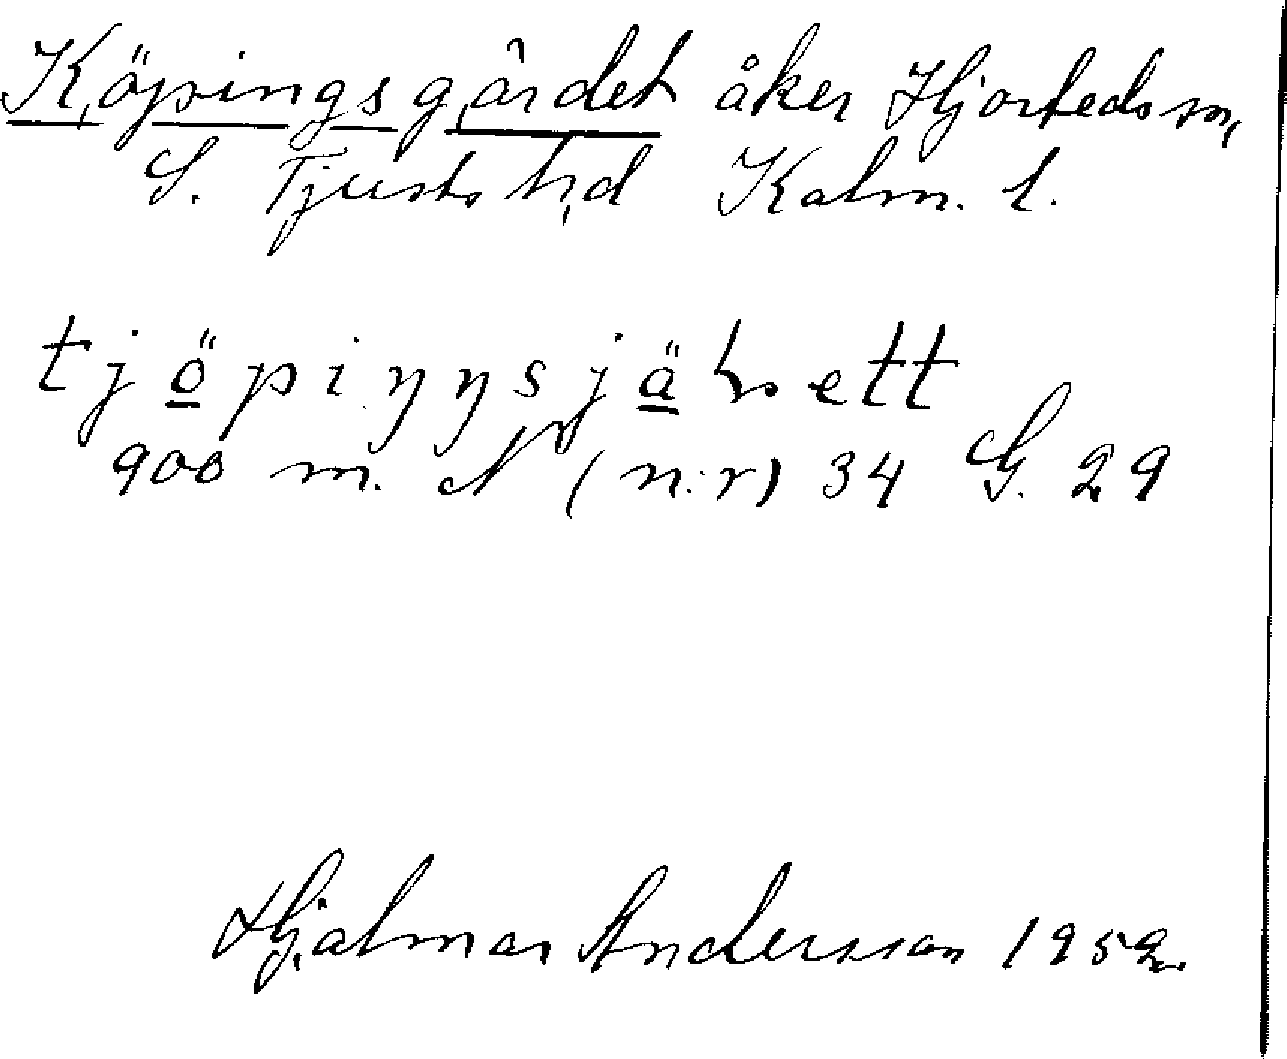 Köpingsgärdet åker Hjorteds sn,
S. Tjusts hd Kalm. l.
tjöpiŋŋsjäҺett
900 m. N (n:r) 34 G. 29
Hjalmar Andersson 1952.